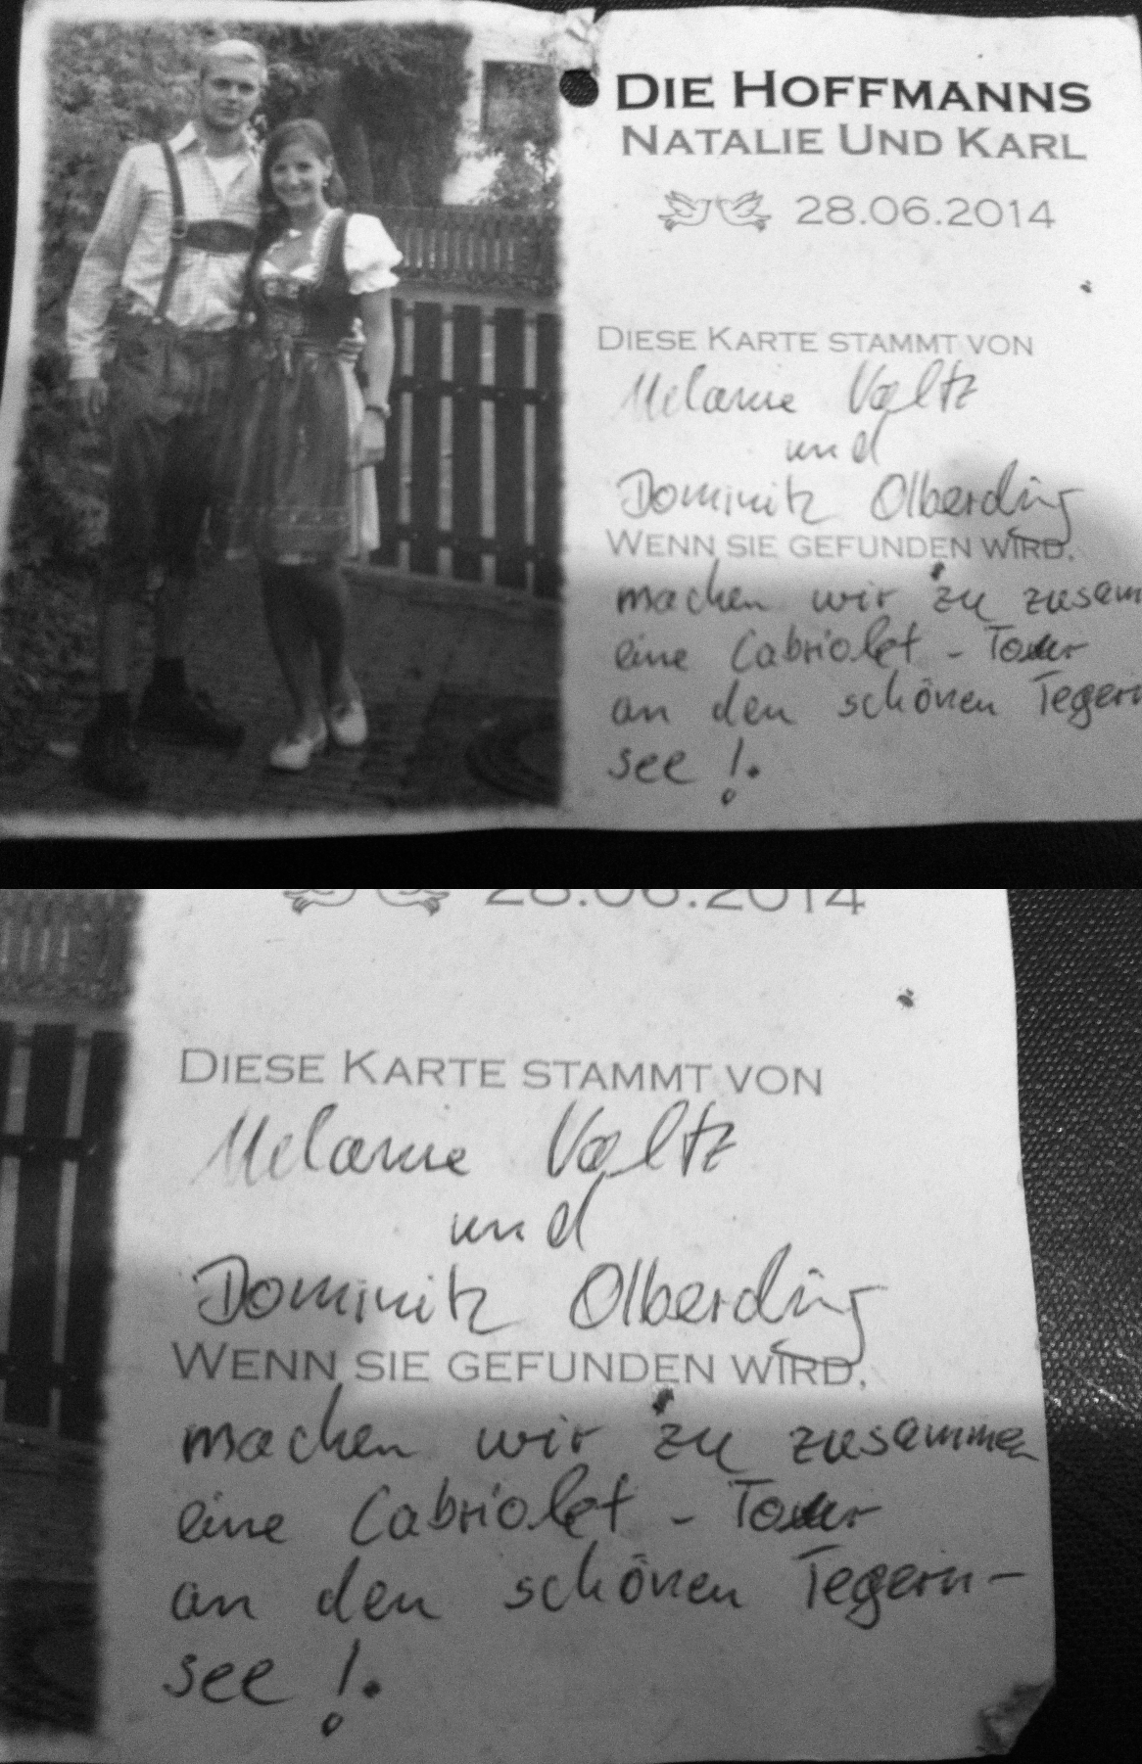 DIE HOFFMANNS
NATALIE UND KARL
28.06.2014
DIESE KARTE STAMMT VON
Melanie Voltz
und
Dominik Olberding
WENN SIE GEFUNDEN WIRD,
machen wir zu zusam
eine Cabriolet - Tour
an den schönen Tegern
see !.
28.06.2014
DIESE KARTE STAMMT VON
Melanie Voltz
und
Dominik Olberding
WENN SIE GEFUNDEN WIRD,
machen wir zu zusammen
eine Cabriolet - Tour
an den schönen Tegern-
see !.